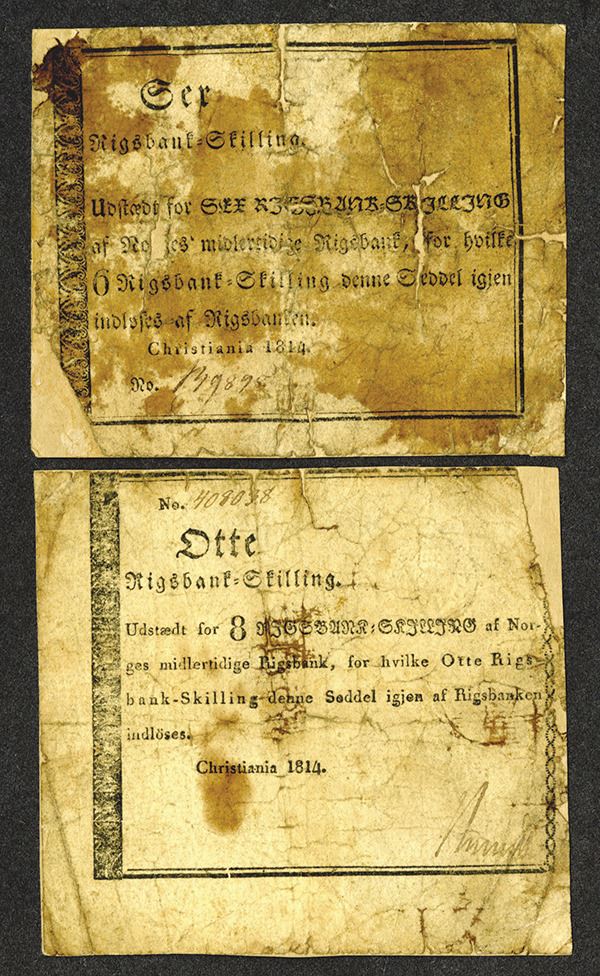 Sex
Rigsbank-Skilling.
Udstædt for SEX RIGSBANK-SKILLING
af No ges midlertidige Rigsbank, for hvilke
6 Rigsbank-Skilling denne Seddel igjen
indløses af Rigsbanken.
Christiania 1814.
No.
No. 408038
Otte
Rigsbank-Skilling.
Udstædt for 8 RIGSBANK-SKILLING af Nor-
ges midlertidige Rigsbank, for hvilke Otte Rigs-
bank-Skilling denne Seddel igjen af Rigsbanken
indlöses.
Christiania 1814.